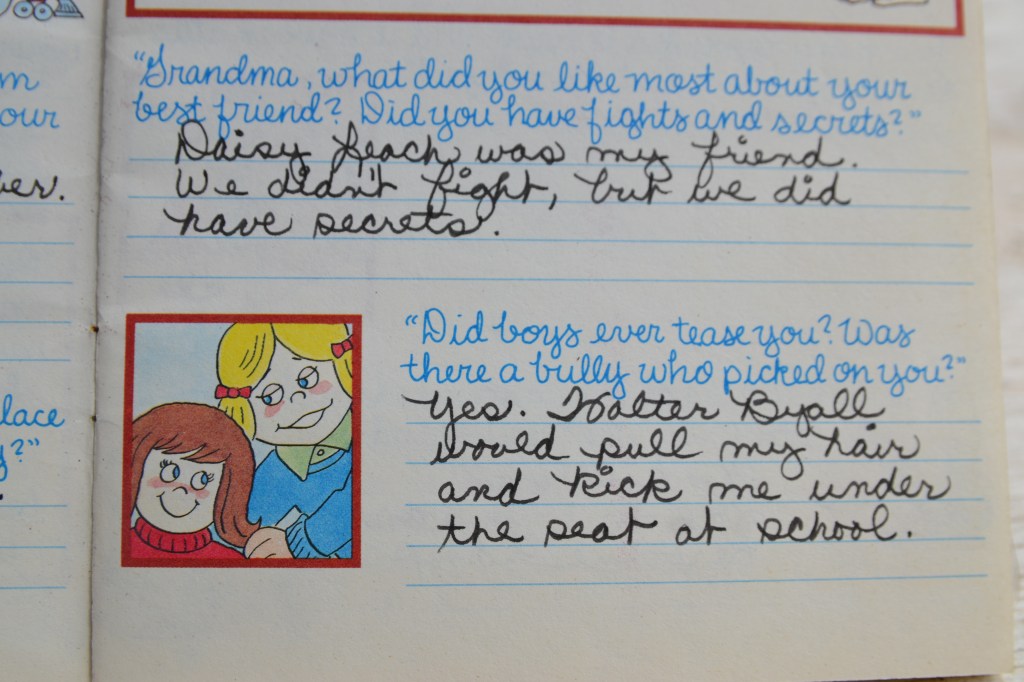 m
our
ber.
lace
?"
"Grandma, what did you like most about your
best friend? Did you have fights and secrets?"
Daisy Leach was my friend.
We didn't fight, but we did
have secrets.
"Did boys ever tease you? Was
there a bully who picked on you?"
Yes. Walter Byall
would pull my hair
and kick me under
the seat at school.